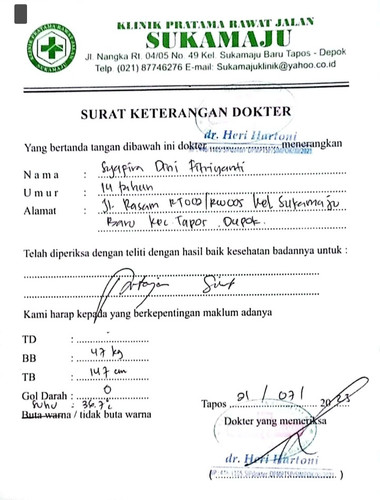 KLINIK PRATAMA RAWAT JALAN
SUKAMAJU
Jl. Nangka Rt. 04/05 No. 49 Kel. Sukamaju Baru Tapos - Depok
Telp (021) 87746276 E-mail: Sukamajuklinik@yahoo.co.id
SURAT KETERANGAN DOKTER
dr. Heri Hartoni
Yang bertanda tangan dibawah ini dokter menerangkan
N a m a : Syafira Dini Fitriyanti
U m u r : 14 tahun
Alamat : Jl. Kel Sukamaju
Baru Kec Tapos . Depok.
Telah diperiksa dengan teliti dengan hasil baik kesehatan badannya untuk :
Kami harap kepada yang berkepentingan maklum adanya
TD : -
BB : 47 kg
TB : 147 cm
Gol Darah : O
Suhu : 36.7°C
Buta warna / tidak buta warna
Tapos 21 / 07 / 2023
Dokter yang memeriksa
dr. Heri Hartoni